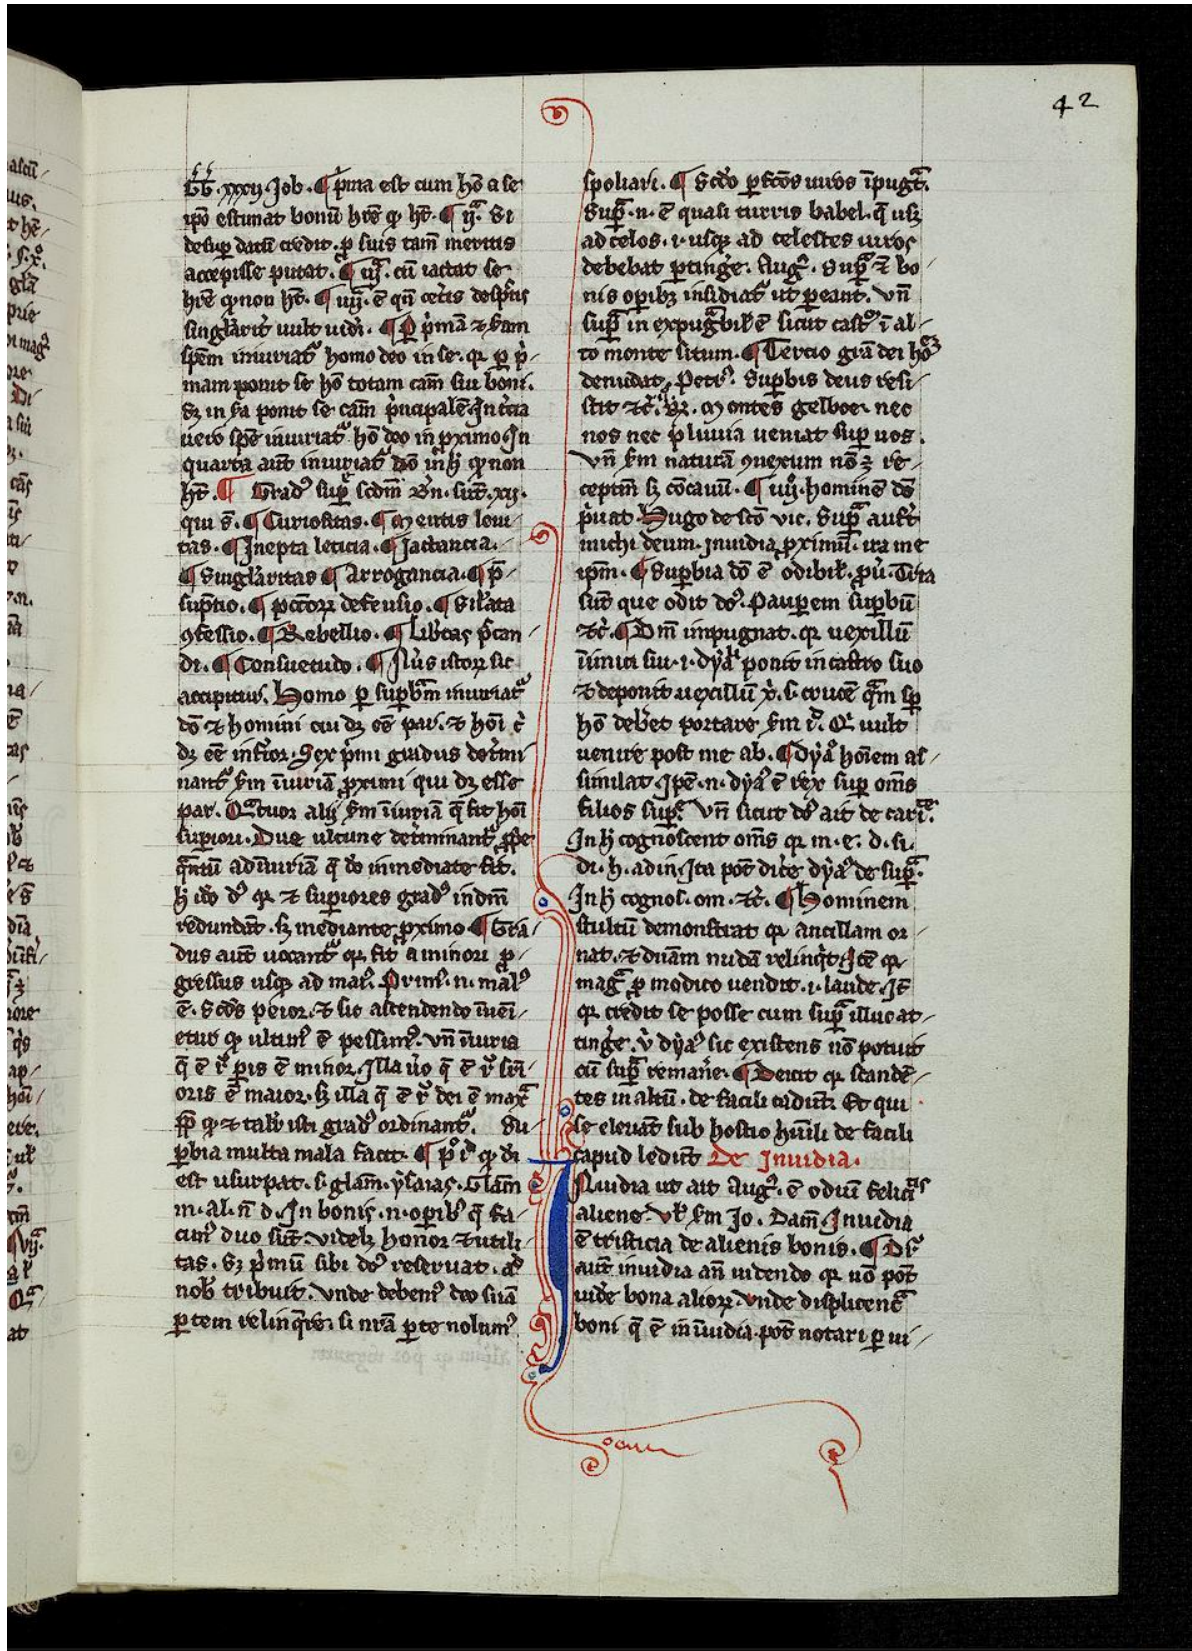 42
xxxij Job. ¶ p̾ma est cum hō a se
ip̄o estimat bonū hr̄e qͥ hꝫ. ¶ ij.ᵃ Si
desup̱ datū credit. ꝓ suis tam̄ meritis
accepisse putat. ¶ iij.ᵃ cū iactat se
hr̄e qͦ non hꝫ. ¶ iiij.ᵃ ē qn̄ cet̾is despͨtis
singl̾arit̾ uult uid̾i. ¶ P p̾mā ⁊ s̄am
sp̄em iniuriat᷑ homo deo in se. qꝛ ꝑ p̾-
mam ponit se hō totam cām sui boni.
Sꝫ in s̄a ponit se cām p̾ncipalē. In t̾cia
uero sp̄e iniuriat᷑ hō deo in ꝓximo. In
quarta aūt iniuriat᷑ dō in h̾ qͦ non
hꝫ. ¶ Gradꝰ sup̱ scdm̄ Bn̄. sūt. xij.
qui s̄. ¶ Curiositas. ¶ Mentis leui-
tas. ¶ Inepta leticia. ¶ Jactancia.
¶ Singl̾aritas ¶ Arrogancia. ¶ p̄-
sup̄tio. ¶ p̄cc̄oꝝ defensio. ¶ Sil̾ata
ꝯfessio. ¶ Rebellio. ¶ Lib̾tas p̄can-
di. ¶ Consuetudo. ¶ Nūs istoꝝ sic
accipitur. Homo ꝑ sup̱bi̅am iniuriat᷑
dō ⁊ homini cui dꝫ eē par. ⁊ hōi c̾
dꝫ eē inf̾ior. Sex p̾mi gradus det̾mi
nant᷑ s̄m iniuriā ꝓximi qui dꝫ esse
par. Qᵃtuor alij s̄m iniuriā q̄ fit hōi
sup̱iori. Due ultime det̾minant᷑
qᵃntū ad iniuriā q̄ dō inmediate fit.
h̾ iō dꝰ qꝛ ⁊ sup̱iores gradꝰ in dm̄
redundāt. sꝫ mediante ꝓximo ¶ Gra-
dus aūt uocant᷑ qꝛ fit a minori ꝓ-
gressus usqꝫ ad maiꝰ. Primꝰ .n. malꝰ
ē. sc̄ds peior. ⁊ sic ascendendo inuēi-
etur qͦ ultimꝰ ē pessimꝰ. Vn̄ iniuria
q̄ ē rͦ p̱is ē minor. Illa ũo q̄ ē rͦ
oris ē maior. sꝫ illa q̄ ē rͦ dei ē maxᵃ
⁊ tal̾r isti gradꝰ ordinant᷑. Su-
p̱bia multa mala facit. ¶ pͦ qͥ di
est usurpat. s. glam̄. ysaias. Glam̄
m. al. n̄ d. In bonis .n. op̱ibꝰ q̄ fa-
cimꝰ duo sūt. videlꝫ honor ⁊ utili-
tas. Sꝫ p̾mū sibi dꝰ reseruat.
nob̾ tribuit. Vnde debemꝰ deo suā
ꝑtem relinq̾re. si nr̄a ꝑte nolumꝰ
spoliari. ¶ Sc̄do ꝑfc̄os uiros īpugᵃt.
Sup̱ᵃ .n. ē quasi turris babel. q̄ usꝫ
ad celos .i. usqꝫ ad celestes uiros
debebat ꝑting̾e. Augꝰ. Sup̱ᵃ ⁊ bo-
nis op̱ibꝫ insidiat᷑ ut ꝑeant. Vn̄
sup̱ᵃ inexpugᵃbil̾ ē sicut castꝰ ī al-
to monte situm. ¶ Tercio gr̄a dei hōꝫ
denudat. Petrꝰ. Sup̱bis deus resi-
stit ⁊c̾. Montes gelboe. nec
ros nec pluuia ueniat sup̱ uos.
Vn̄ s̄m naturā ꝯuexum nō ꝫ re-
ceptm̄ sꝫ cōcauū. ¶ iiij.ͦ hominē dō
p̾uat. Hugo de sc̄o vic. Sup̱ᵃ aufert
michi deum. Inuidia ꝓximū. ira me
ip̄m. ¶ Sup̱bia dō ē odibil̾. ꝓu̾. Tria
sūt que odit dꝰ. Paup̱em sup̱bū
⁊c̾. ¶ Dm̄ impugnat. qꝛ uexillū
inimici sui .i. dyᵃli ponit in castro suo
⁊ deponit uexillū x̾. s. crucē qᵃm sp̱
hō deb̾et portare s̄m iͦ. Qi uult
uenire post me ab. ¶ Dyᵃͦ hoīem as-
similat. Ip̄e .n. dyᵃꝰ ē rex sup̱ om̄s
filios sup̱ᵉ. Vn̄ sicut dꝰ ait de carīᵗᵉ.
In h̾ cognoscent om̄s qꝛ m. e. d. si.
di. h. ad in. Ita pōt dic̾e dyᵃꝰ de sup̱ᵃ.
In h̾ cognos. om. ⁊c̾. ¶ Hominem
stultū demonstrat qꝛ ancillam or-
nat. ⁊ dn̄am nudā relinq̾t. Itē qꝛ
magᵃ ꝓ modico uendit .i. laude. Iꝫ
qꝛ credit se posse cum sup̱ᵃ illuc at-
ting̾e. v̾ dyᵃꝰ sic existens nō potuit
cū sup̱ᵃ reman̾e. ¶ Deicit qꝛ scandē-
tes in altū. de facili cadūt. Et qui
se eleuat sub hostio hūili de facili
capud ledūt De Inuidia.
Inuidia ut ait Augꝰ. ē odiū felicitᵃˢ
aliene. Vl̾ s̄m Jo. Dam̄. Inuidia
ē tristicia de alienis bonis. ¶ Dr᷑
aūt inuidia an̄ uidendo qꝛ nō pōt
uid̾e bona alioꝝ. Vnde displicentᵃ
boni q̄ ē in inuidia. pōt notari ꝑ ui-